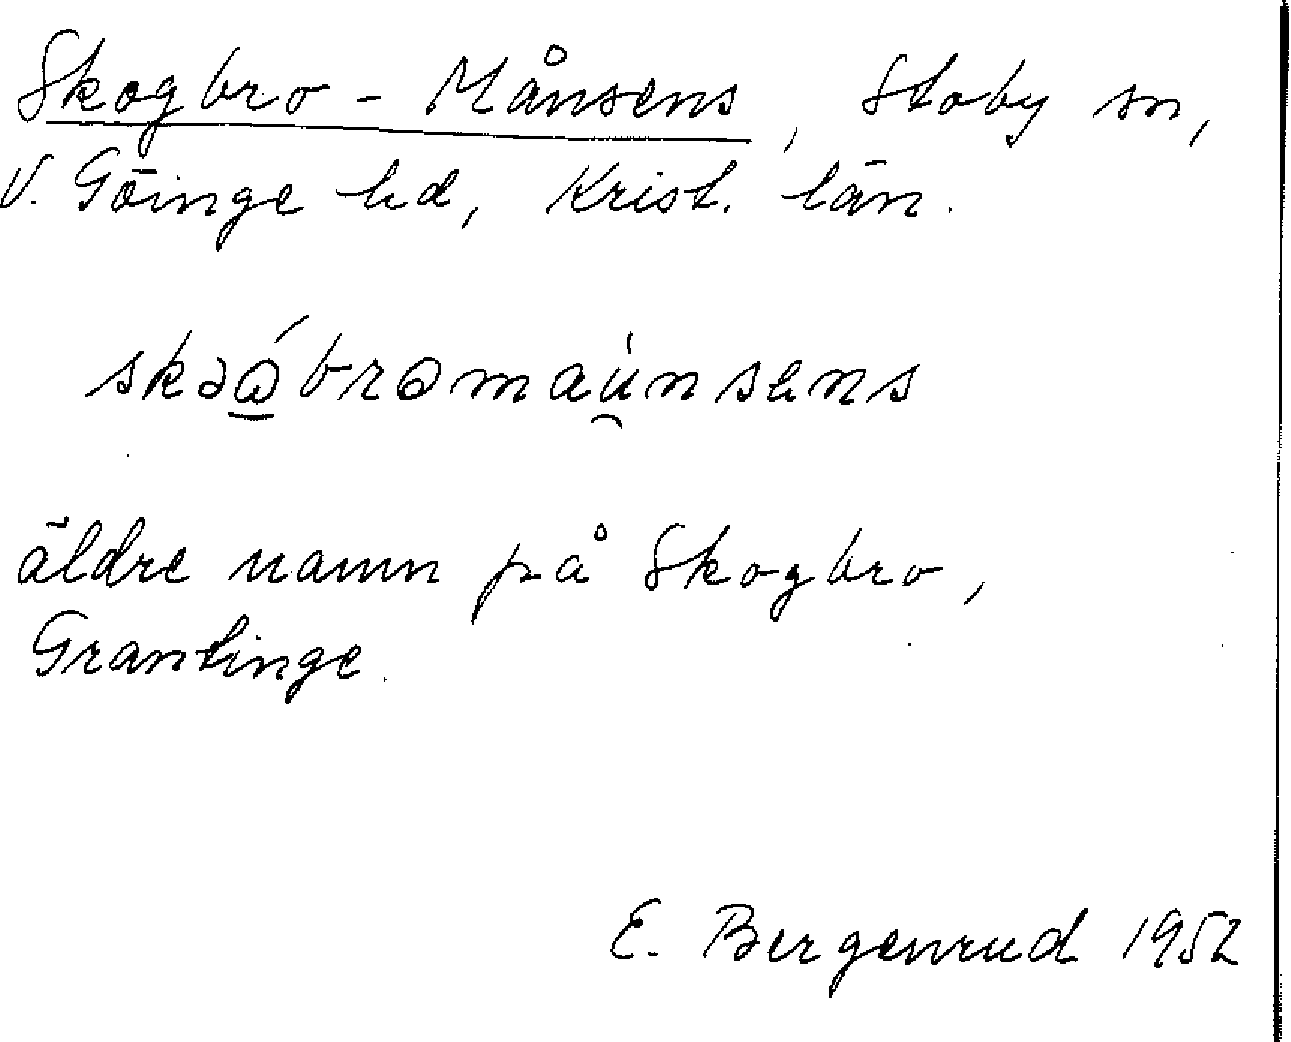 Skogbro - Månsens, Stoby sn,
V. Göinge hd, Krist. län.
skəǿbrɷmaúnsens
äldre namn på Skogbro,
Grantinge.
E. Bergenrud 1952